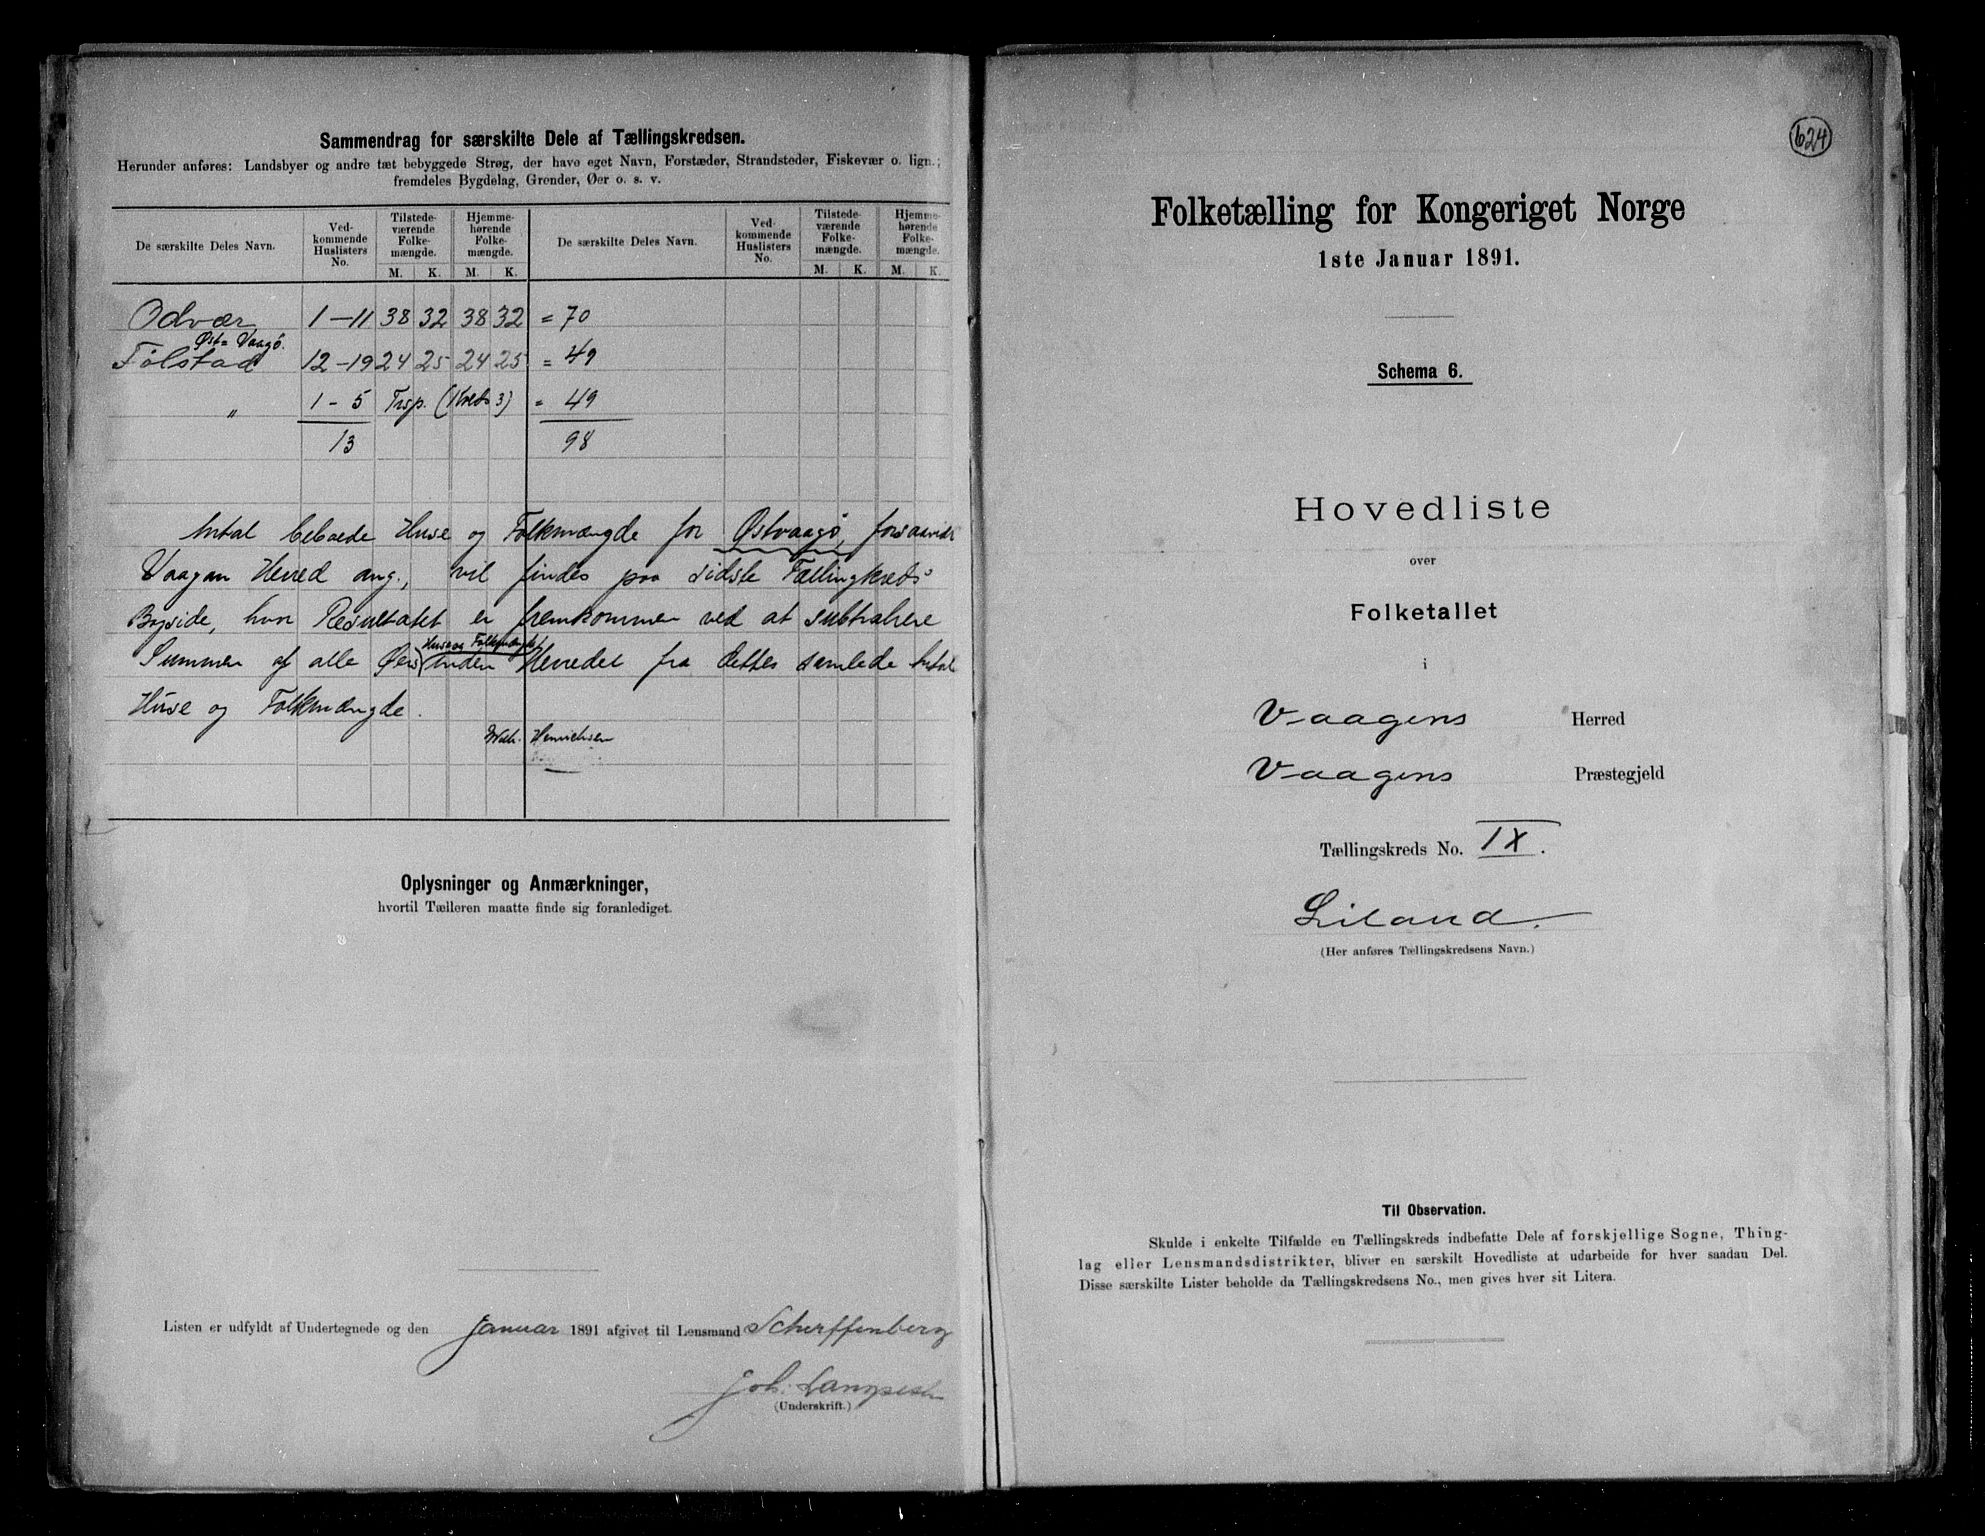 Sammendrag for særskilte Dele af Tællingskredsen.
Herunder anføres: Landsbyer og andre tæt bebyggede Strøg, der have eget Navn, Forstæder, Strandsteder, Fiskevær o. lign.;
fremdeles Bygdelag, Grender, Øer o. s. v.
De særskilte Deles Navn. Ved-kommende Huslisters No. Tilstede-værende Folke-mængde. M. K. Hjemme-hørende Folke-mængde. M. K. De særskilte Deles Navn. Ved-kommende Huslisters No. Tilstede-værende Folke-mængde. M. K. Hjemme-hørende Folke-mængde. M. K.
Odvær 1-11 38 32 38 32 = 70
Øst-Vaagö.
Følstad 12-19 24 25 24 25 = 49
" 1-5 Trsp. (Kreds 3) = 49
13 98
Antal beboede Huse og Folkmængde for Østvaagö, forsaavidt
Vaagan Herred ang., vil findes paa sidste Tællingkreds'
Bagside, hvor Resultatet er fremkommen ved at subtrahere
Huse og Folkmængde
Summen af alle Øers inden Herredet fra dettes samlede Antal
Huse og Folkmængde.
Henrichsen
Oplysninger og Anmærkninger,
hvortil Tælleren maatte finde sig foranlediget.
Listen er udfyldt af Undertegnede og den Januar 1891 afgivet til Lensmand Scherffenberg
Joh.
(Underskrift.)
624
Folketælling for Kongeriget Norge
1ste Januar 1891.
Schema 6.
Hovedliste
over
Folketallet
i
Vaagens Herred
Vaagens Præstegjeld
Tællingskreds No. IX.
Liland.
(Her anføres Tællingskredsens Navn.)
Til Observation.
Skulde i enkelte Tilfælde en Tællingskreds indbefatte Dele af forskjellige Sogne, Thing-
lag eller Lensmandsdistrikter, bliver en særskilt Hovedliste at udarbeide for hver saadan Del.
Disse særskilte Lister beholde da Tællingskredsens No., men gives hver sit Litera.